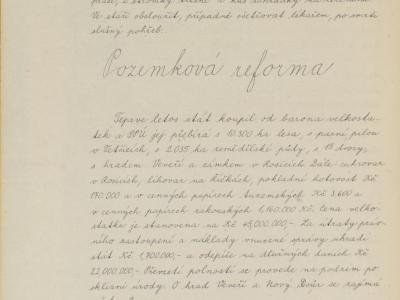 Ve stáří obsloužit, případně ošetřovat lékařem, po smrti
slušný pohřeb.
Pozemková reforma
Teprve letos stát koupil od barona velkosta-
tek a SPÚ jej přebírá s 10.300 ha lesa, s parní pilou
v Tetčicích, s 2.035 ha zemědělské půdy, s 15 dvory,
s hradem Veveří a zámkem v Rosicích. Dále cukrovar
v Rosicích, lihovar na Říčkách, pokladní hotovost Kč
170.000 a v cenných papírech tuzemských Kč 3.600 a
v cenných papírech rakouských 1,160.000 Kč, cena velko-
statku je stanovena na Kč 45,000.000,- Za útraty práv-
ního zastoupení a náklady vnucené správy uhradí
stát Kč 1,700.000,- a odepíše na dlužných daních Kč
22,000.000,- Převzetí polností se provede na podzim po
sklizni úrody. O hrad Veveří a Nový Dvůr se zajímá